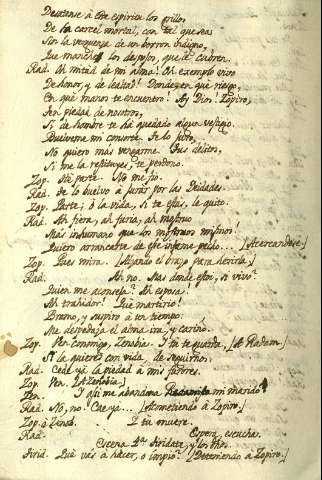 Desatense à este espiritu los grillos
De la carcel mortal, con tal que sea
Sin la verguenza de un borron indigno,
Que manche los despojos, que le cubren.
Rad. Ah mitad de mi alma! Ah exemplo vivo
De honor, y de lealtad! Donde, en què riesgo,
En què manos te encuentro! Ay Dios! Zopiro,
Ten piedad de nosotros,
Si de hombre te ha quedado algun vestigio.
Buelveme mi consorte. Te lo pido,
No quiero mas vengarme. Tus delitos,
Si me la restituyes, te perdono.
Zop. Parte. No me fio.
Rad. Te lo buelvo à jurar por las Deidades.
Zop. Parte; ò la vida, si te tardas, le quito.
Rad. Ah fiera, ah furia, ah monstruo
Mas inhumano que los mismos
Quiero arrancarte de esse infame pecho... [Acercandose.]
Zop. Pues mira. [Alzando el brazo para herirla.]
Rad. Ah no. Mas donde estoi, si vivo?
Quien me aconseja? Ah esposa!
Ah trahidor! Que martirio!
Bramo, y suspiro à un tiempo:
Me despedaza el alma ira, y cariño.
Zop. Ven conmigo, Zenobia. I tu te aparta, [A Radam.]
Si la quieres con vida, de seguirnos.
Rad. Cede ya la piedad à mis furores.
Zop. Ven. [A Zenobia.]
Zen. I assi me abandona mi marido!
Rad. No, no: Caeya... [Acometiendo à Zopiro.]
Zop. à Zenob. I tu muere.
Rad. Espera, escucha.
Escena Tiridate, y los dhos.
Tirid. Què vàs à hacer, o impio? [Deteniendo à Zopiro.]